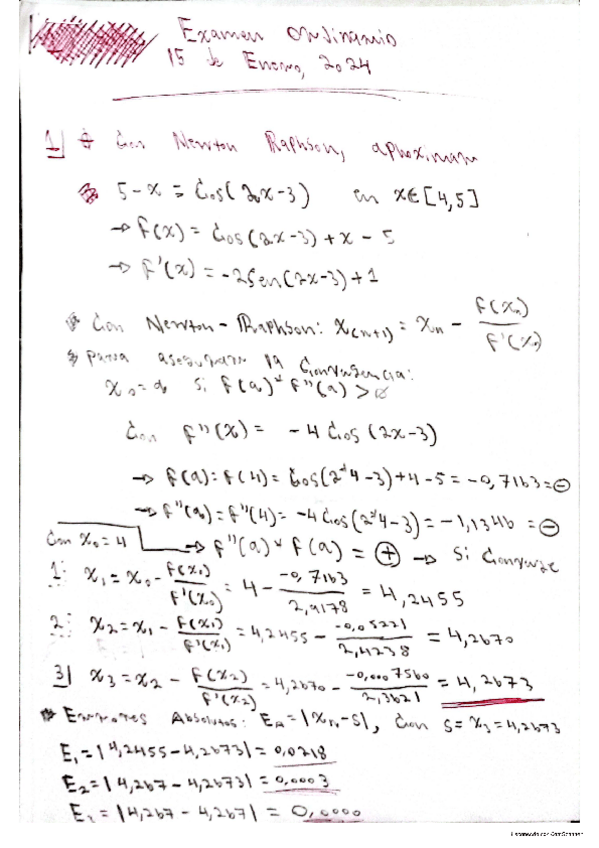 Examen Ordinario
15 de Enero, 2024
1) Con Newton Raphson, aproximar
5-x = Cos(2x-3) en x∈[4,5]
→ f(x) = Cos(2x-3)+x-5
→ f'(x) = -2Sen(2x-3)+1
Con Newton-Raphson: x(n+1) = xn - f(xn)/f'(xn)
Para asegurar la Convergencia:
x0=a si f(a)*f''(a)>0
Con f''(x) = -4Cos(2x-3)
→ f(a)=f(4)= Cos(2*4-3)+4-5 = -0,7163 = ⊖
→ f''(a)=f''(4)= -4Cos(2*4-3) = -1,1346 = ⊖
Con x0=4 → f''(a)*f(a) = ⊕ → Si Converge
1: x1 = x0 - f(x0)/f'(x0) = 4 - -0,7163/2,9178 = 4,2455
2: x2 = x1 - f(x1)/f'(x1) = 4,2455 - -0,05221/2,4238 = 4,2670
3) x3 = x2 - f(x2)/f'(x2) = 4,2670 - -0,0007560/2,3621 = 4,2673
Errores Absolutos: EA = |xn-s|, Con s = x3 = 4,2673
E1 = |4,2455-4,2673| = 0,0218
E2 = |4,267-4,2673| = 0,0003
E3 = |4,267-4,267| = 0,0000
Escaneado con CamScanner